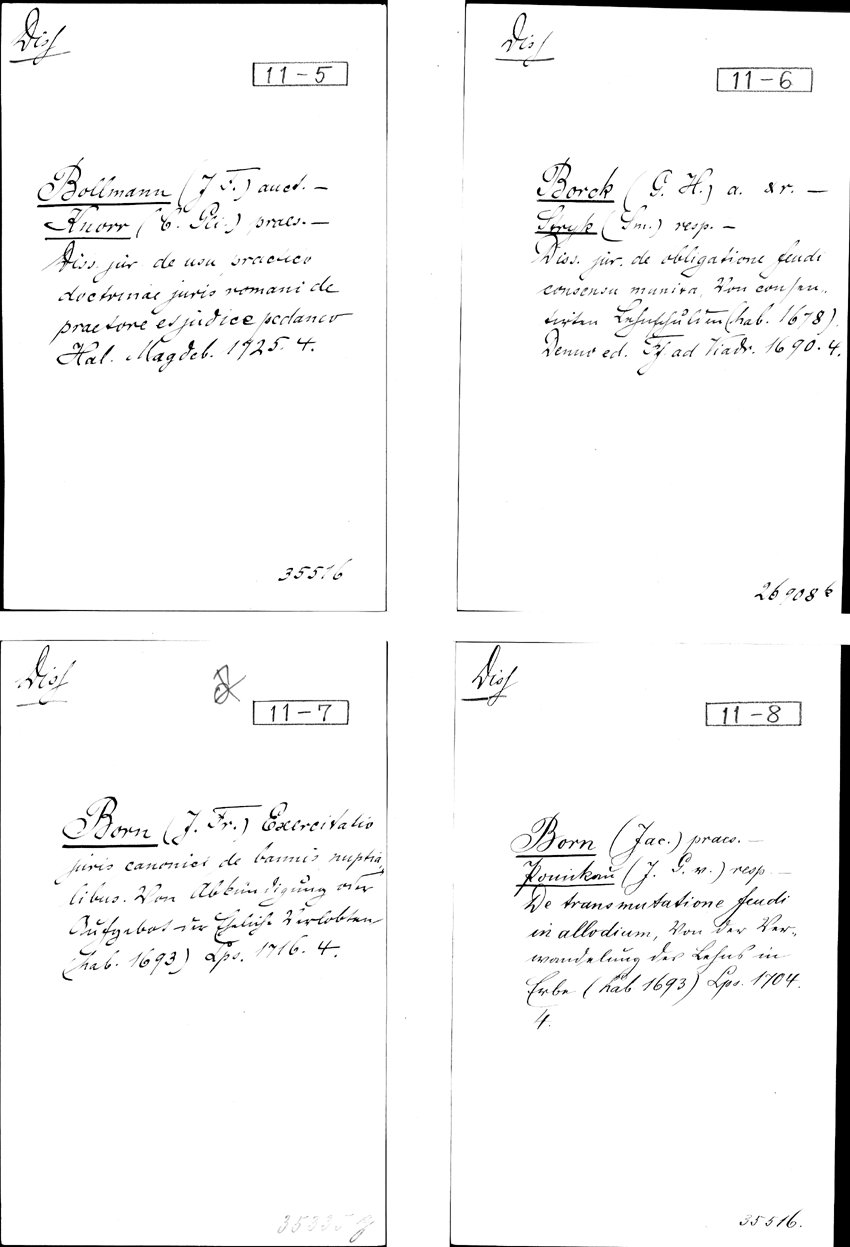 Diss
11-5
Bollmann (J F.) auct. —
Knorr (C. Gli.) praes. —
Diss. jur de usu practico
doctrinae juris romani de
praetore et judice pedaneo
Hal. Magdeb. 1725. 4.
35516
Diss
11-6
Borck (G. H.) a. & r. —
Stryk (Sm.) resp. —
Diss. jur. de obligatione feudi
consensu munita, Von consen-
tirten Lehnschulden (hab. 1678).
Denuo ed. Ff ad Viadr. 1690. 4.
26908
Diss
11-7
Born (J. Fr.) Exercitatio
juris canonici de bannis nuptia
libus. Von Abkündigung oder
Aufgebot der Ehelich Verlobten
(hab. 1693) Lps. 1716. 4.
35335 g
Diss
11-8
Born (Jac.) praes. —
Ponickau (J. G. v.) resp —
De transmutatione feudi
in allodium, Von der Ver-
wandelung des Lehns in
Erbe (hab 1693) Lps. 1704.
4.
35516.